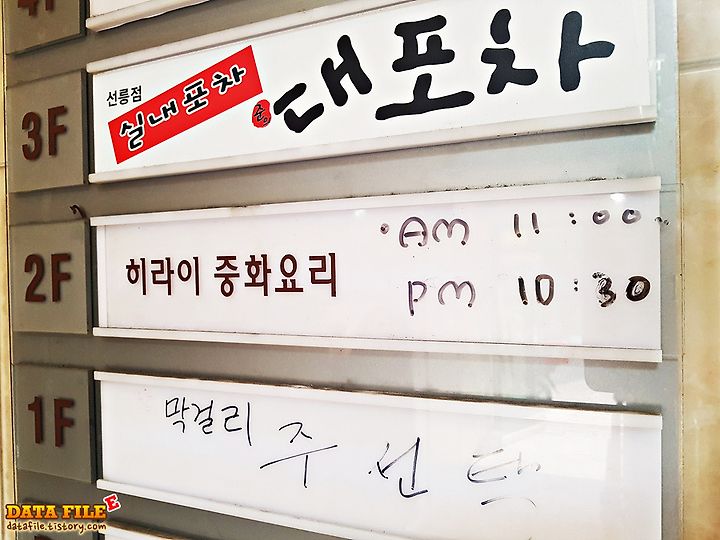 3F
선릉점
실내포차
대포차
2F
히라이 중화요리
AM 11:00
PM 10:30
1F
막걸리
주선택
DATA FILE E
datafile.tistory.com